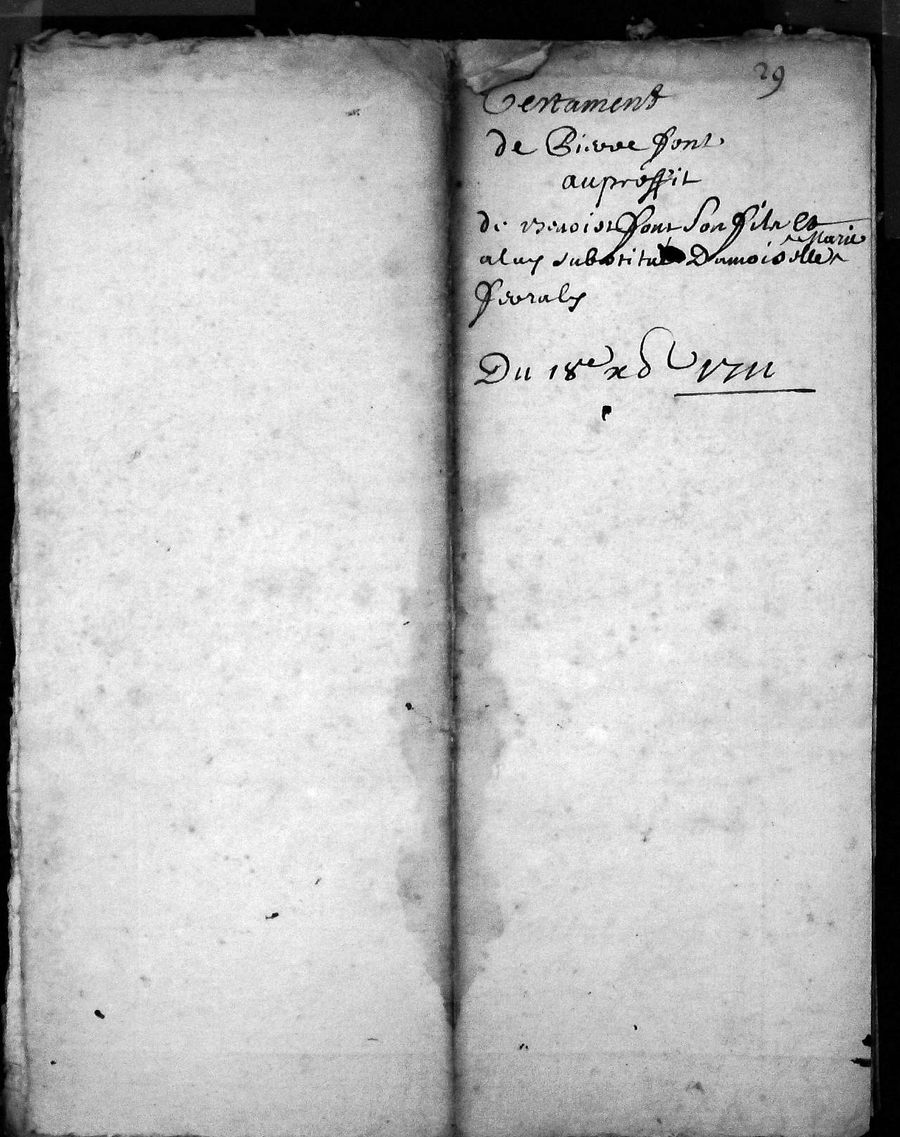 29
Testament
de Pierre font
auproffit
de Benoist font Son fils et
a luy substitué Damoiselle Marie
Du 18e xb 1711